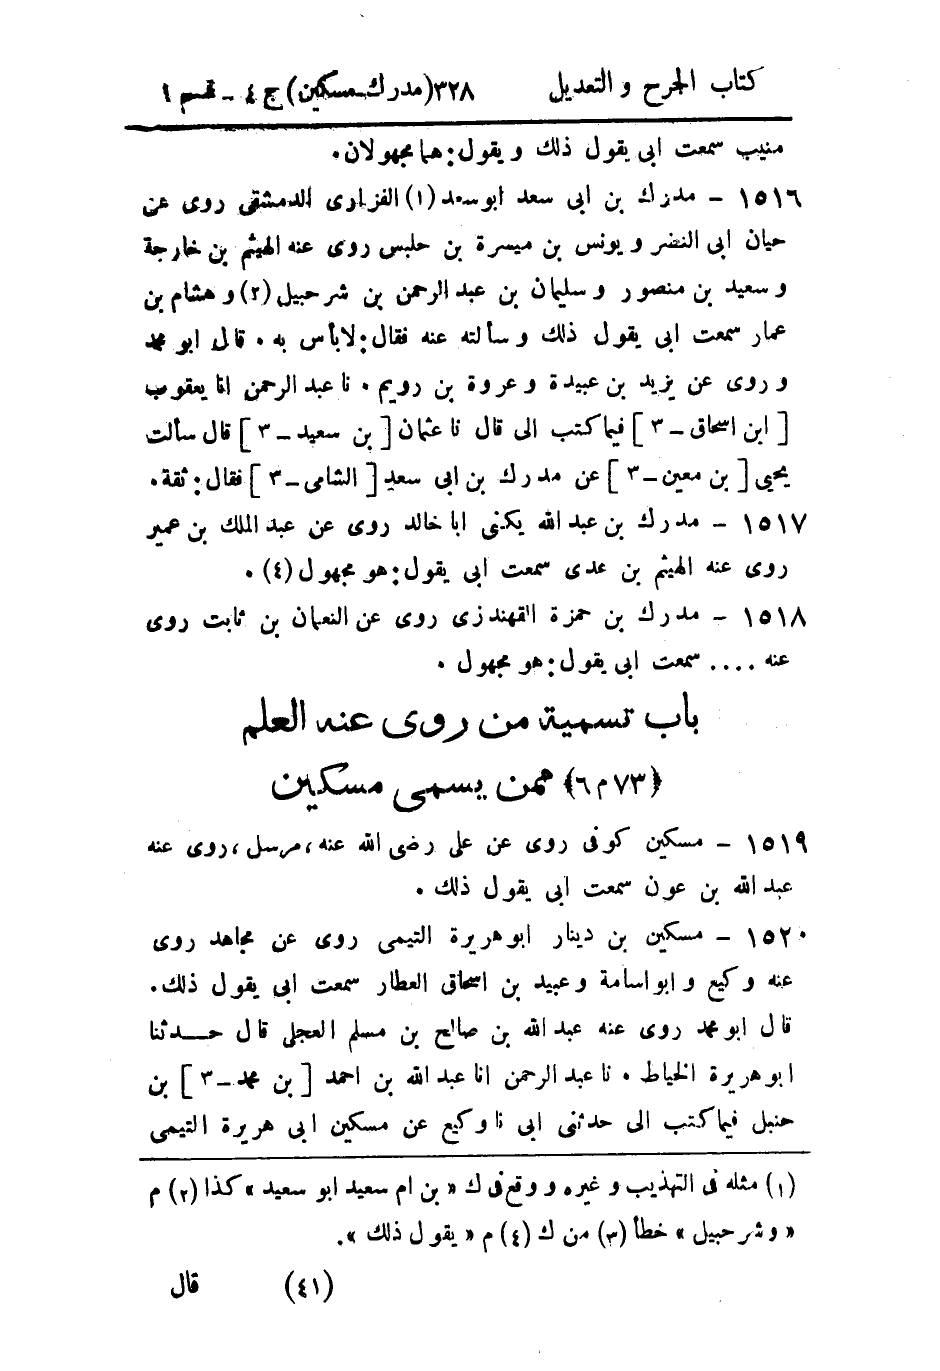 كتاب الجرح و التعديل ٣٢٨ (مدرك-مسكين) ج ٤ - قسم ١
منيب سمعت ابى يقول ذلك و يقول: هما مجهولان.
١٥١٦ - مدرك بن ابى سعد ابو سعد (١) الفزارى الدمشقى روى عن
حيان ابى النضر و يونس بن ميسرة بن حلبس روى عنه الهيثم بن خارجة
و سعيد بن منصور و سليمان بن عبد الرحمن بن شرحبيل (٢) و هشام بن
عمار سمعت ابى يقول ذلك و سألته عنه فقال: لابأس به . قال ابو محمد
و روى عن يزيد بن عبيدة و عروة بن رويم . نا عبد الرحمن انا يعقوب
[ ابن اسحاق - ٣ ] فيما كتب الى قال نا عثمان [ بن سعيد - ٣ ] قال سألت
يحيى [ بن معين - ٣ ] عن مدرك بن ابى سعد [ الشامى - ٣ ] فقال: ثقة .
١٥١٧ - مدرك بن عبد الله يكنى ابا خالد روى عن عبد الملك بن عمير
روى عنه الهيثم بن عدى سمعت ابى يقول: هو مجهول (٤) .
١٥١٨ - مدرك بن حمزة القهندزى روى عن النعمان بن ثابت روى
عنه .... سمعت ابى يقول: هو مجهول .
باب تسمية من روى عنه العلم
ممن يسمى مسكين (٧٣ م ٦)
١٥١٩ - مسكين كوفى روى عن على رضى الله عنه، مرسل، روى عنه
عبد الله بن عون سمعت ابى يقول ذلك .
١٥٢٠ - مسكين بن دينار ابو هريرة التيمى روى عن مجاهد روى
عنه وكيع و ابو اسامة و عبيد بن اسحاق العطار سمعت ابى يقول ذلك.
قال ابو محمد روى عنه عبد الله بن صالح بن مسلم العجلى قال حـــدثنا
ابو هريرة الخياط . نا عبد الرحمن انا عبد الله بن احمد [ بن محمد - ٣ ] بن
حنبل فيما كتب الى حدثنى ابى نا وكيع عن مسكين ابى هريرة التيمى
(١) مثله فى التهذيب و غيره و وقع فى ك « بن ام سعيد ابو سعيد » كذا (٢) م
« و شرحبيل » خطأ (٣) من ك (٤) م « يقول ذلك ».
(٤١) قال